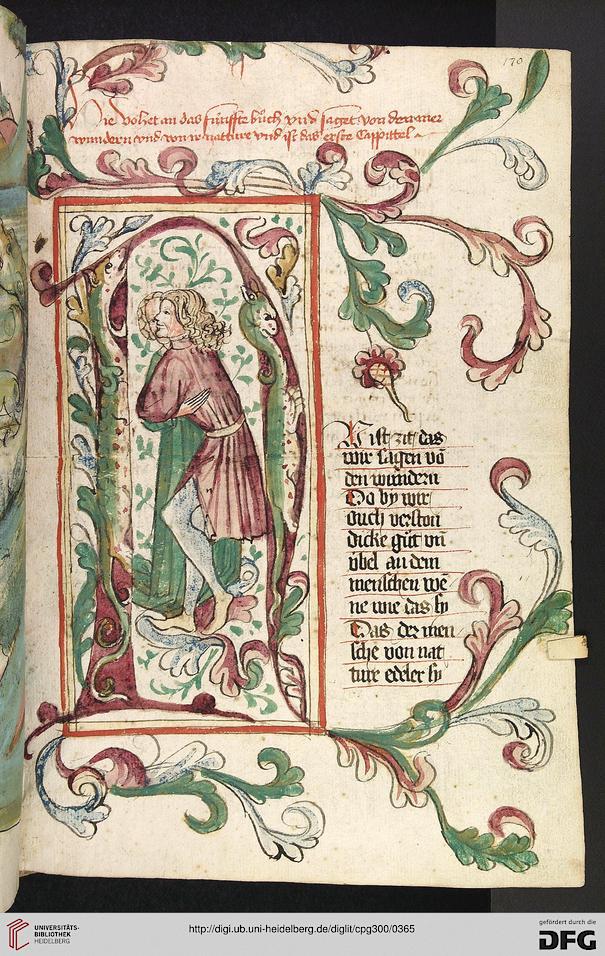 170
Hie vohet an das fúnffte bůch vnd saget von der mer
wundern vnd von ir natture vnd ist das erste Cappittel
N
V ist zit das
wir sagen vō
den wundern
Do by wir
ouch verston
dicke gůt vn
v̈bel an dem
menschen we
ne wie das sy
Das der men
sche von nat
ture edeler sy
UNIVERSITÄTS-
BIBLIOTHEK
HEIDELBERG
http://digi.ub.uni-heidelberg.de/diglit/cpg300/0365
gefördert durch die
DFG